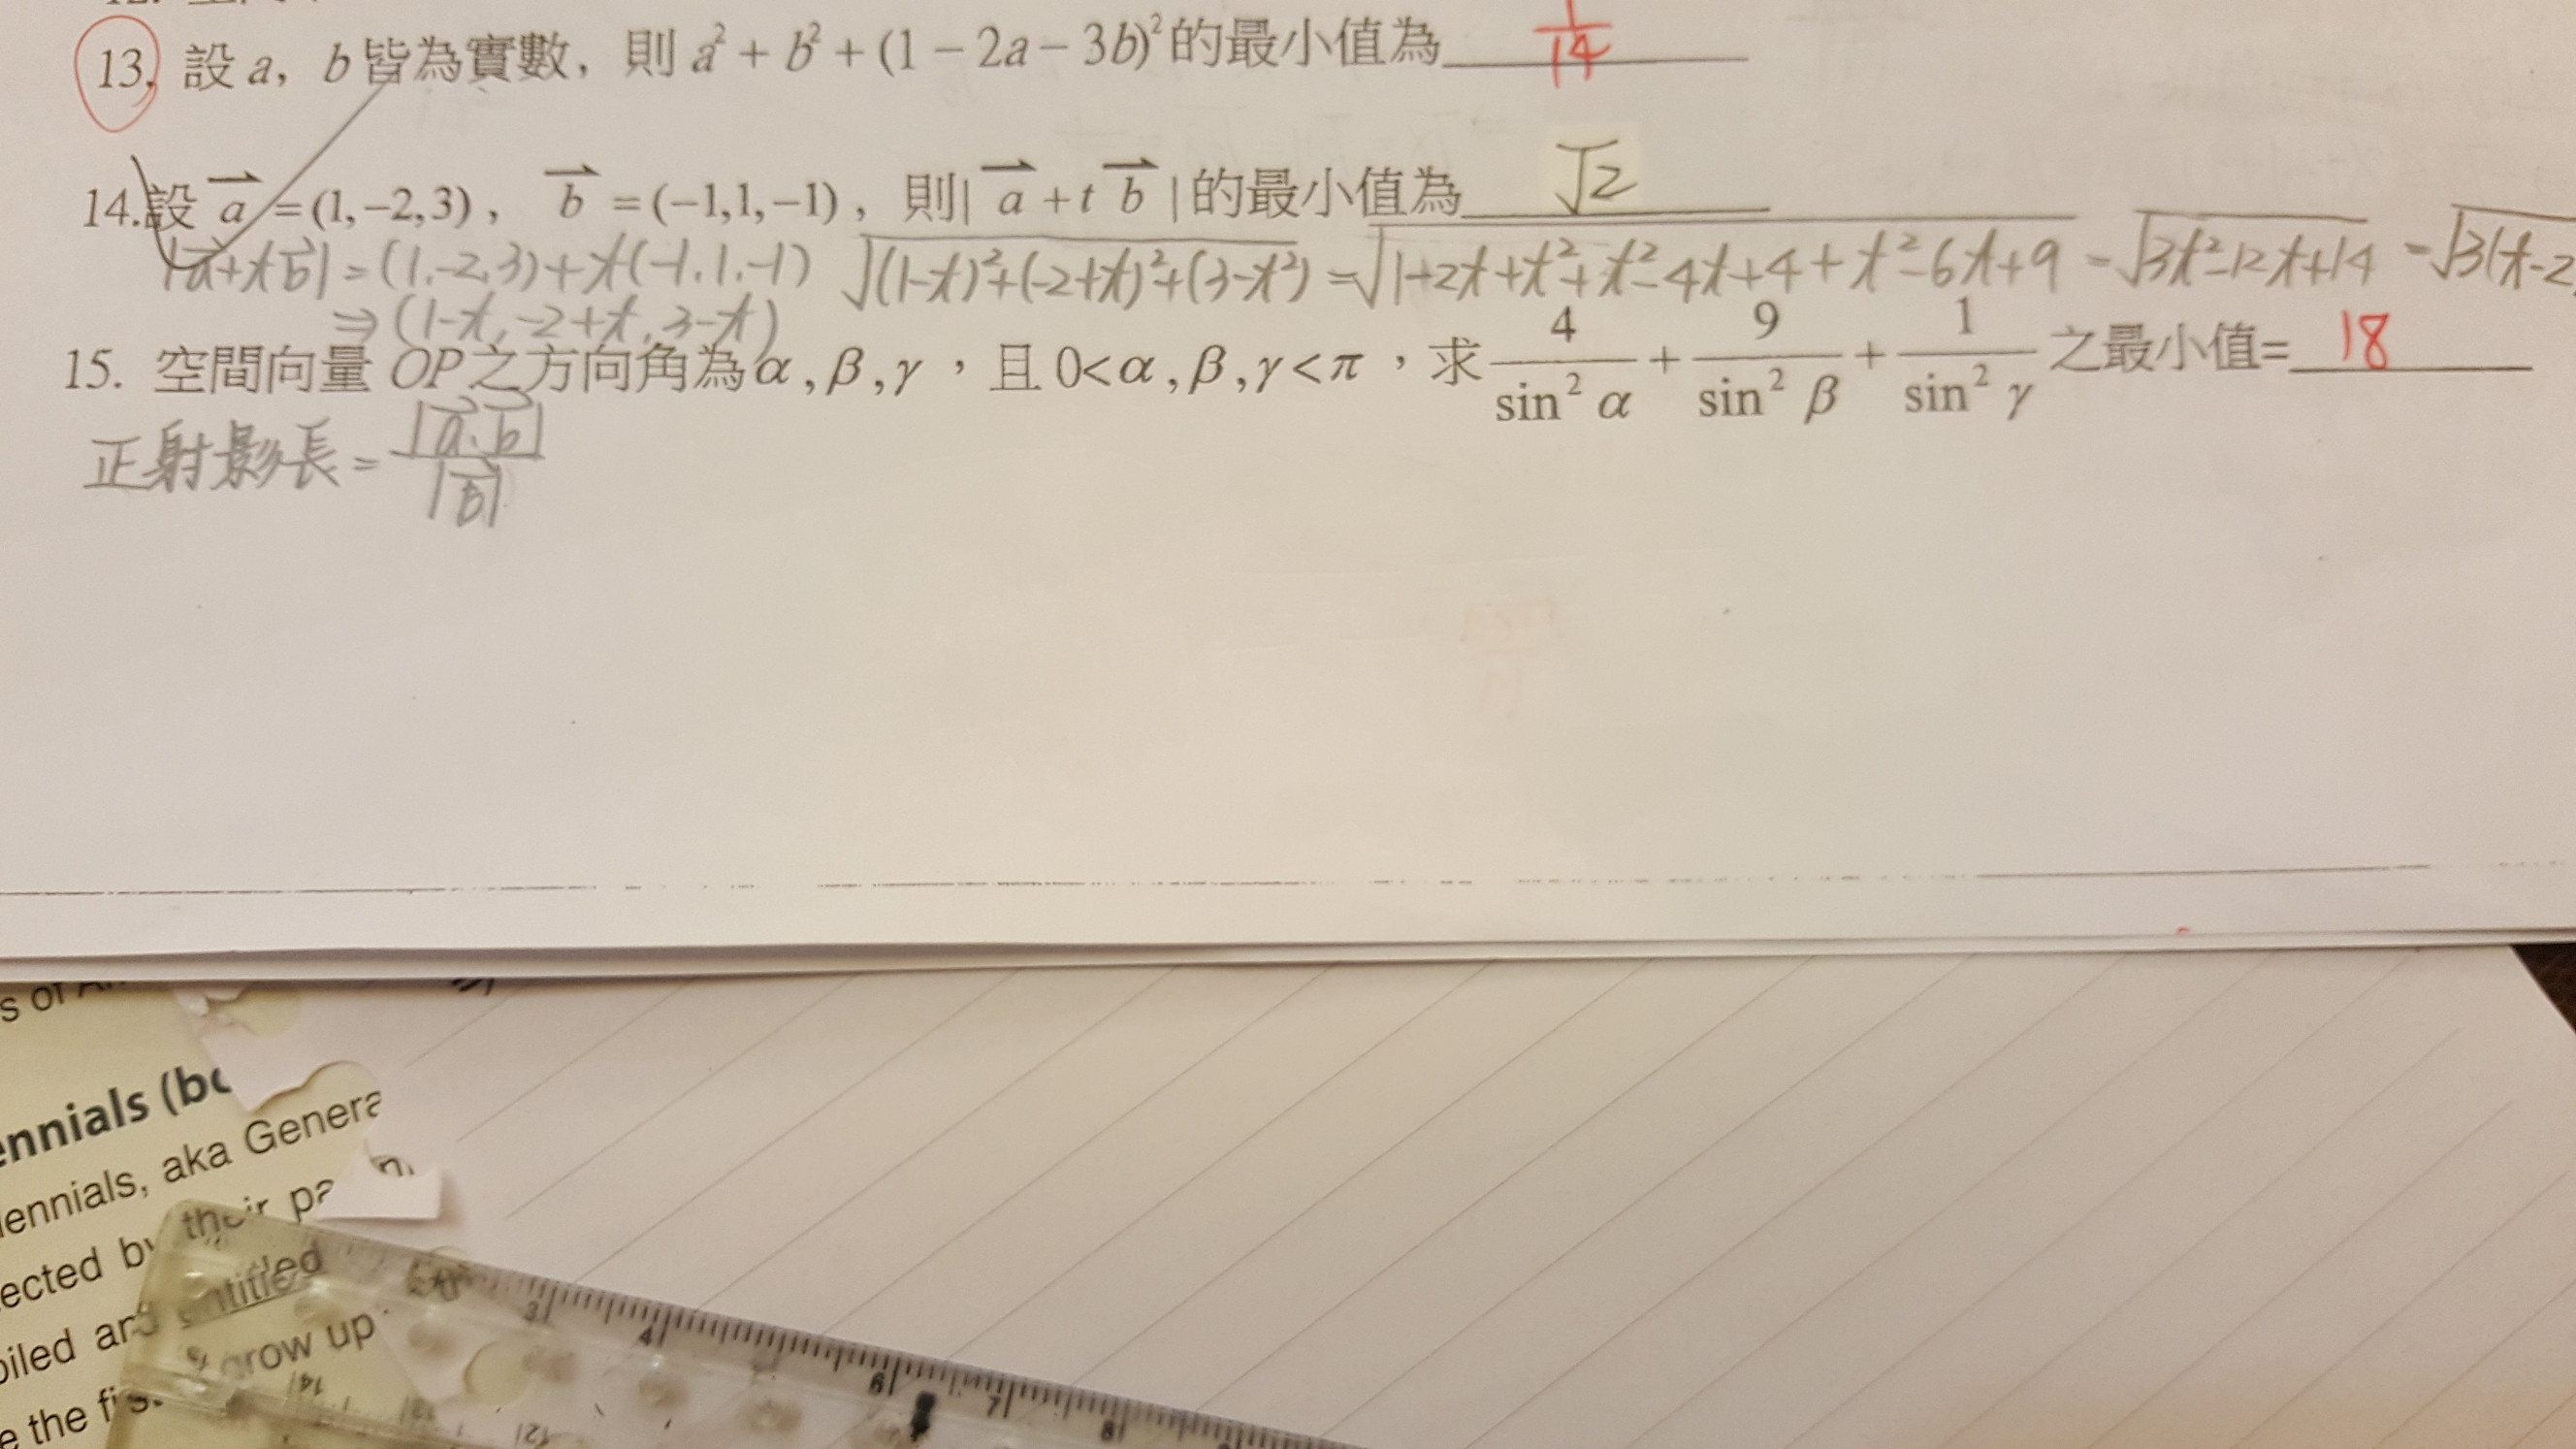 13. 設 a，b 皆為實數，則 a² + b² + (1 − 2a − 3b)² 的最小值為 1/14
14. 設 a⃗ = (1,−2,3)，b⃗ = (−1,1,−1)，則 | a⃗ + t b⃗ | 的最小值為 √2
|a⃗+tb⃗| = (1,-2,3)+t(-1,1,-1) √((1-t)²+(-2+t)²+(3-t²)) = √(1+2t+t²+t²-4t+4+t²-6t+9) = √(3t²-12t+14) = √3(t-2
⇒ (1-t, -2+t, 3-t)
15. 空間向量 OP 之方向角為 α , β , γ ，且 0< α , β , γ < π ，求 4/sin² α + 9/sin² β + 1/sin² γ 之最小值= 18
正射影長 = |a⃗·b⃗|/|b⃗|
s of
ennials (bo
lennials, aka Genera
ected by their pa
oiled and entitled
grow up
e the firs
3 4 6 7 8
14 13 12